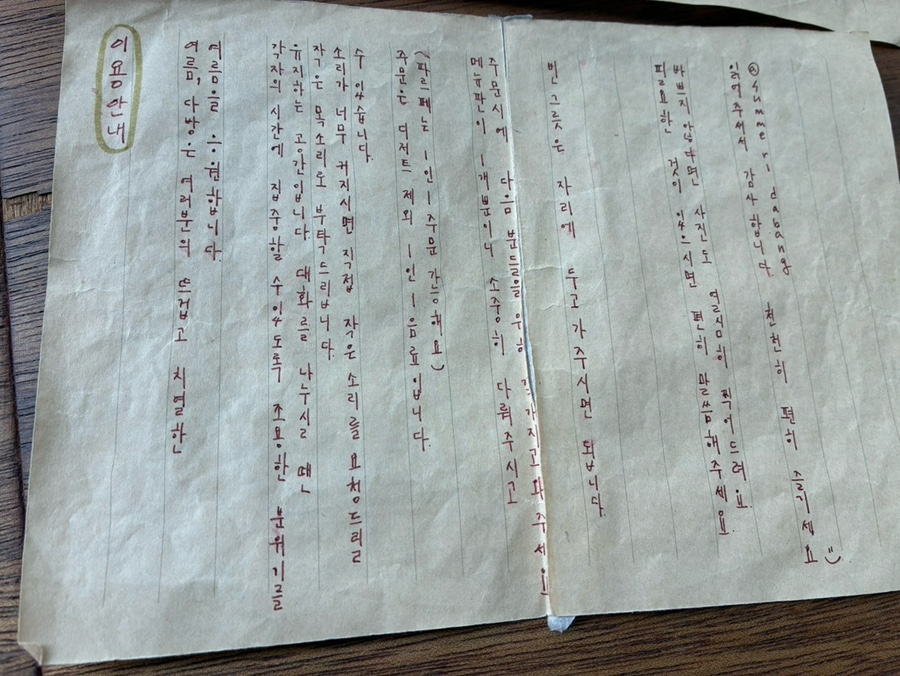 이용안내
여름, 다방은 여러분의 뜨겁고 치열한
여름을 응원합니다.
각자의 시간에 집중할 수 있도록 조용한 분위기를
유지하는 공간입니다. 대화를 나누실 땐
작은 목소리로 부탁드립니다.
소리가 너무 커지시면 직접 작은 소리를 요청드릴
수 있습니다.
주문은 디저트 제외 1인 1음료입니다.
(파르페는 1인 1주문 가능해요)
메뉴판이 1개뿐이니 소중히 다뤄주시고
주문시에 다음 분들을 위해 가지고 와주세요
빈 그릇은 자리에 두고 가주시면 됩니다.
필요한 것이 있으시면 편히 말씀해주세요.
바쁘지 않다면 사진도 열심히 찍어드려요.
읽어주셔서 감사합니다. 천천히 편히 즐기세요 :)
@summeri dabang